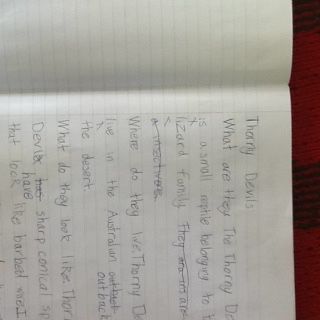 Thorny Devils
What are they The Thorny De
is a small reptile belonging to t
lizard family They are
Where do they live.Thorny De
live in the Australian outback
the desert.
What do they look like.Thor
Devils have sharp conical sp
that look like barbed wire.I